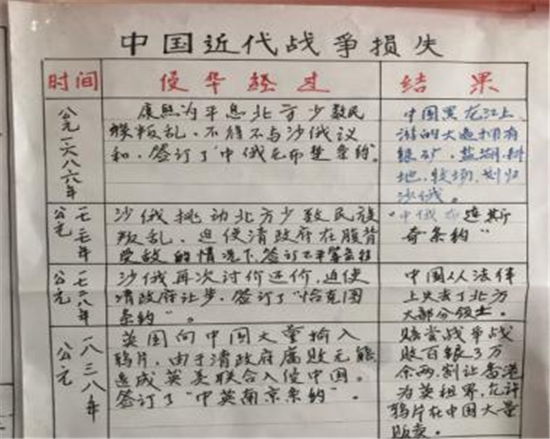 中国近代战争损失
时间
侵华经过
结果
公元一六八六年
康熙为平息北方少数民
族叛乱，不得不与沙俄议
和，签订了"中俄尼布楚条约"。
中国黑龙江上
游的大
银矿，盐湖，耕
地，牧场，划归
沙俄。
公元
一七二七年
沙俄挑动北方少数民族
叛乱，迫使清政府在腹背
受敌的情况下，签订不平等条约
"中俄布连斯
奇条约"
公元
一七二八年
沙俄再次讨价还价，迫使
清政府让步，签订了"恰克图
条约"。
中国从法律
上失去了北方
大部分领土。
公元
一八三八年
英国向中国大量输入
鸦片，由于清政府腐败无能
造成英美联合入侵中国。
签订了"中英南京条约"。
赔尝战争战
败百银3万
余两，割让香港
为英租界，允许
鸦片在中国大量
贩卖。